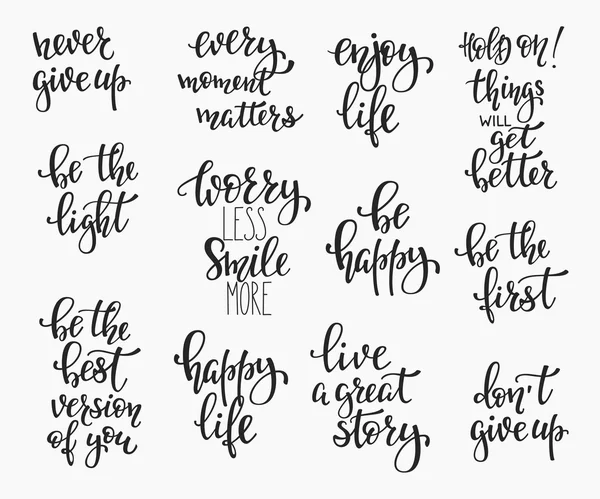 never
give up
every
moment
matters
enjoy
life
Hold on!
things
WILL
get
better
be the
light
worry
LESS
Smile
MORE
be
happy
be the
first
be the
best
version
of you
happy
life
live
a great
story
don't
give up